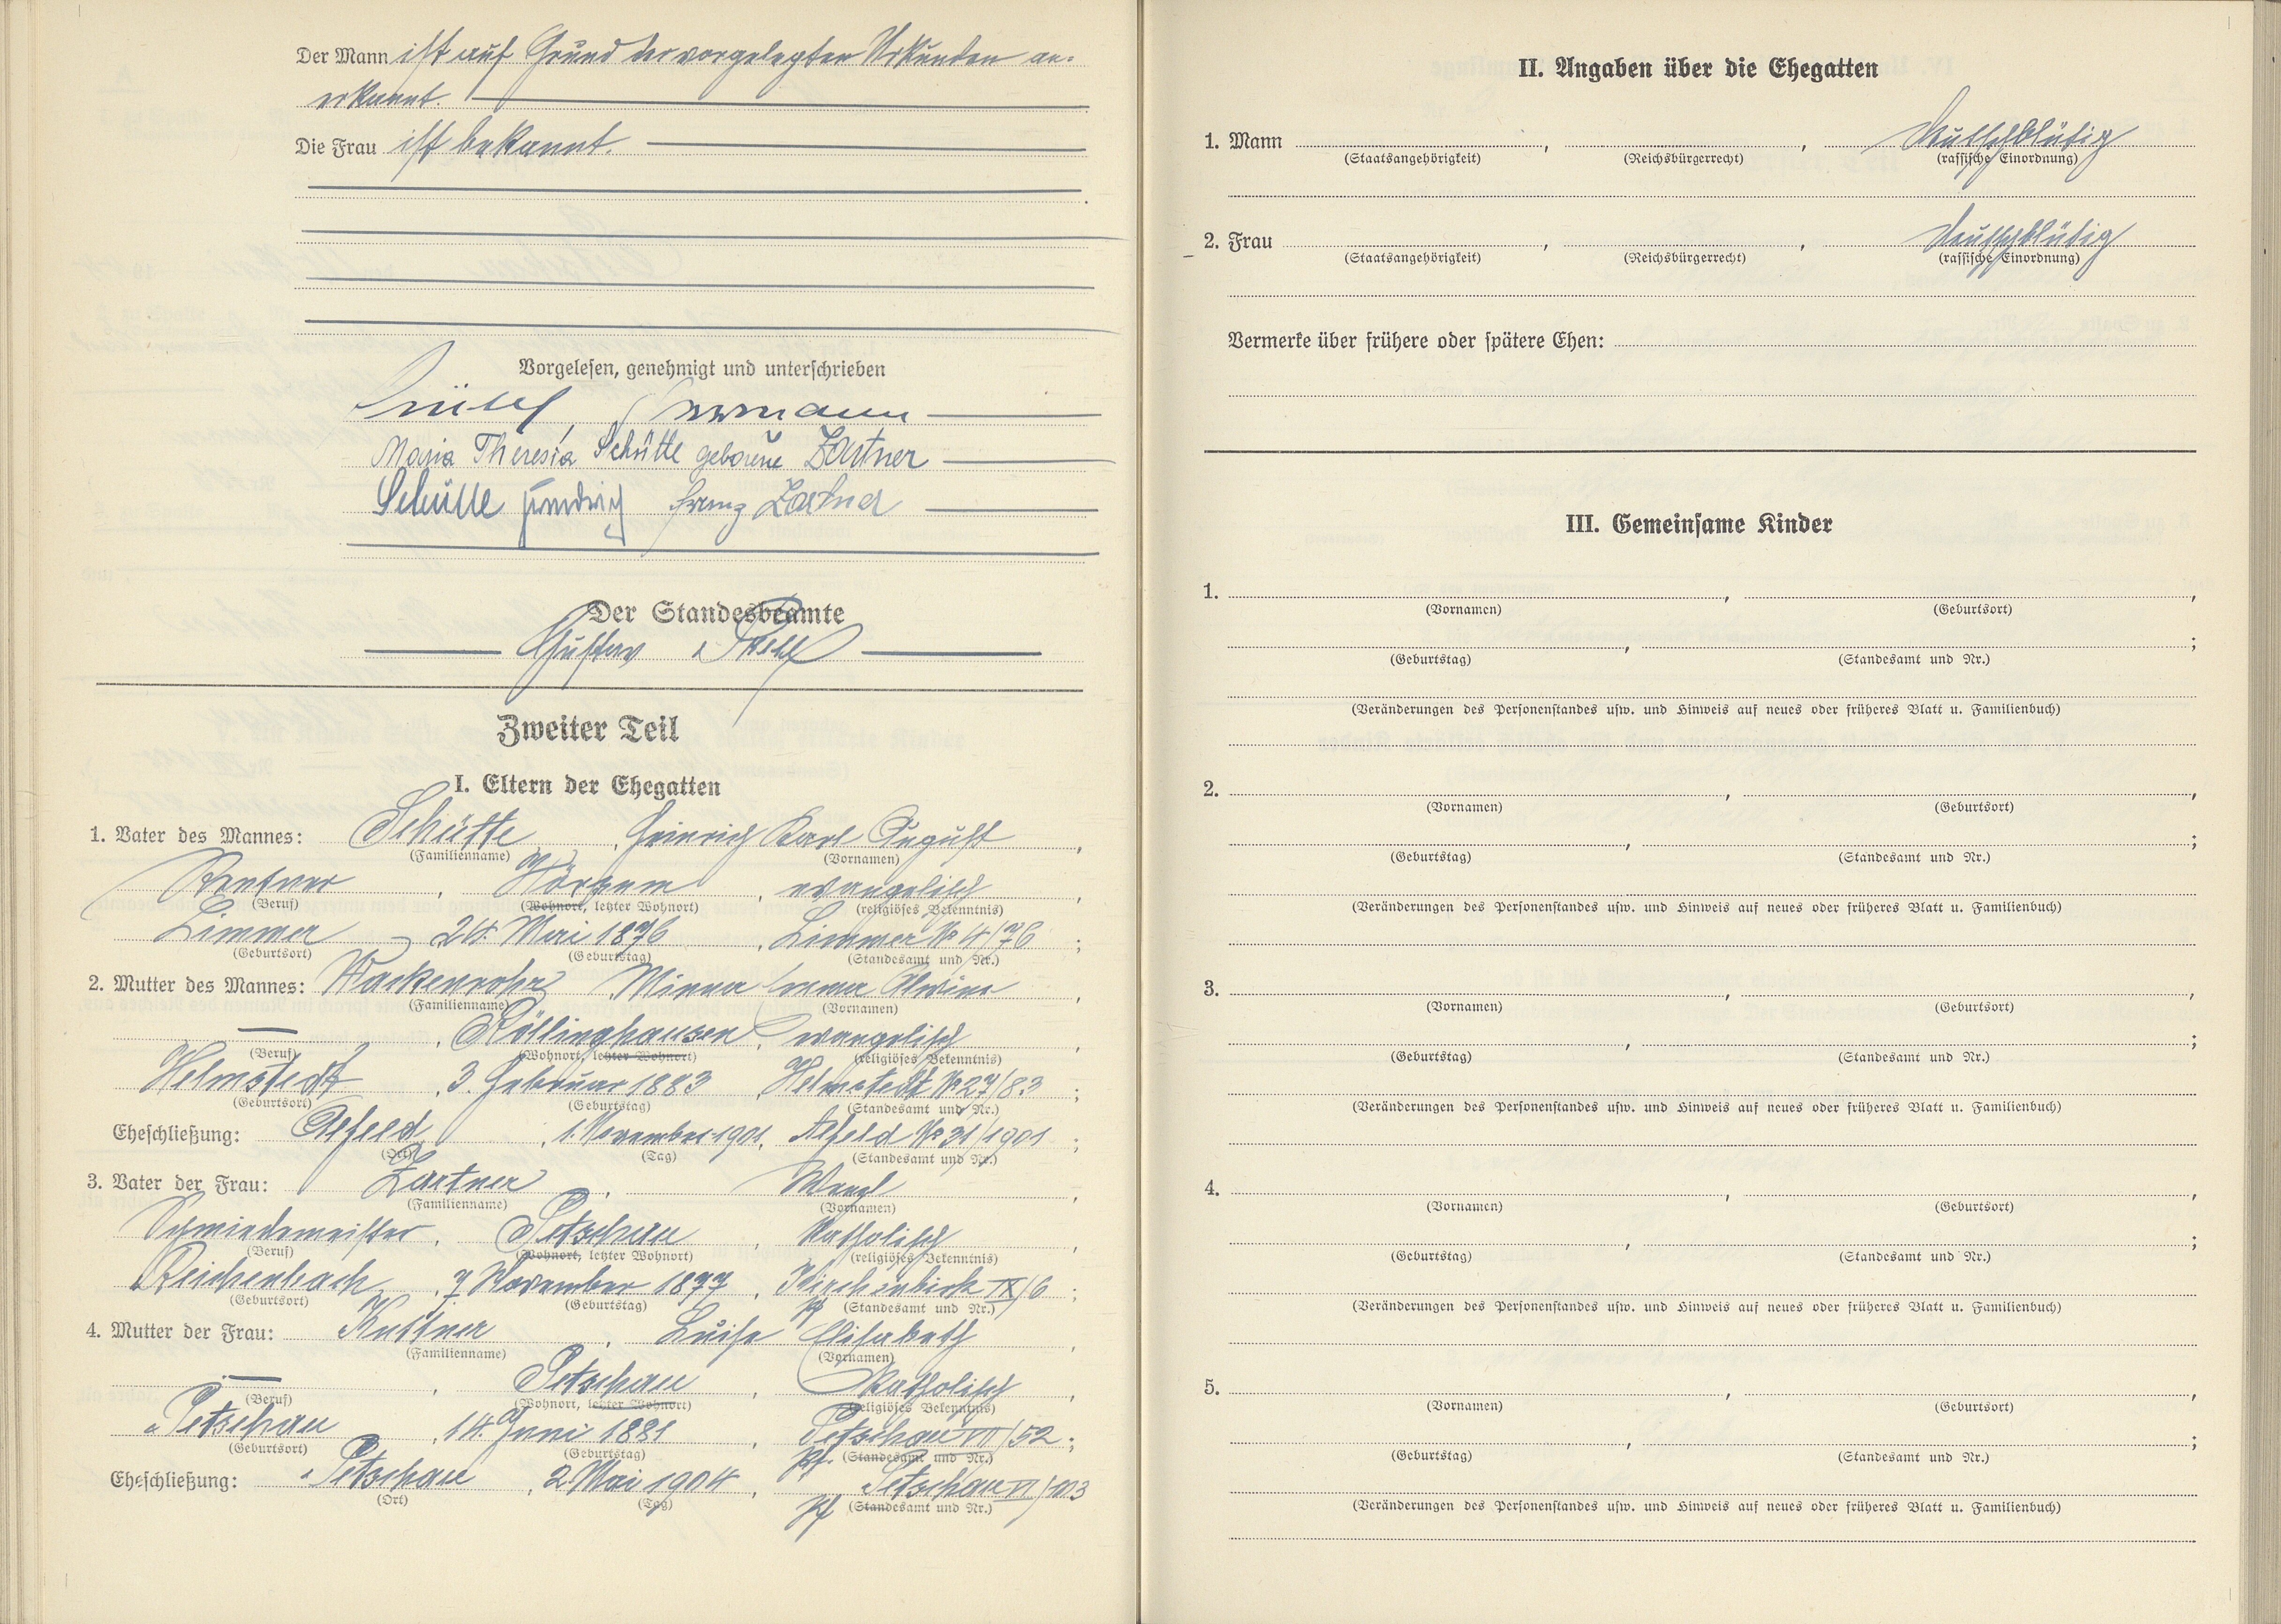 Der Mann ist auf Grund der vorgelegten Urkunden an-
erkannt.
Die Frau ist bekannt.
Vorgelesen, genehmigt und unterschrieben
Hermann
Maria Theresia Schütte geborene Zartner
Schütte Franz Zartner
Der Standesbeamte
Gustav
Zweiter Teil
I. Eltern der Ehegatten
1. Vater des Mannes: Schütte, Heinrich Karl August,
(Familienname) (Vornamen)
Rentner, Hörsum, evangelisch,
(Beruf) (Wohnort, letzter Wohnort) (religiöses Bekenntnis)
Limmer, 24. Mai 1876, Limmer № 4/76;
(Geburtsort) (Geburtstag) (Standesamt und Nr.)
2. Mutter des Mannes: Wackenrohr, Minna Emma Alwine,
(Familienname) (Vornamen)
—, Röllinghausen, evangelisch,
(Beruf) (Wohnort, letzter Wohnort) (religiöses Bekenntnis)
Helmstedt, 3. Februar 1883, Helmstedt № 27/83;
(Geburtsort) (Geburtstag) (Standesamt und Nr.)
Eheschließung: Alfeld, 1. November 1901, Alfeld № 31/1901;
(Ort) (Tag) (Standesamt und Nr.)
3. Vater der Frau: Zartner, Wenzl,
(Familienname) (Vornamen)
Schmiedemeister, Petschau, katholisch,
(Beruf) (Wohnort, letzter Wohnort) (religiöses Bekenntnis)
Reichenbach, 7 November 1877, Kirchenbirk IX/6;
(Geburtsort) (Geburtstag) Pf (Standesamt und Nr.)
4. Mutter der Frau: Kuttner, Luise Elisabeth,
(Familienname) (Vornamen)
—, Petschau, katholisch,
(Beruf) (Wohnort, letzter Wohnort) (religiöses Bekenntnis)
Petschau, 14. Juni 1881, Petschau VII/52;
(Geburtsort) (Geburtstag) Pf. (Standesamt und Nr.)
Eheschließung: Petschau, 2. Mai 1904, Petschau VI/103
(Ort) (Tag) Pf (Standesamt und Nr.)
II. Angaben über die Ehegatten
1. Mann , , deutschblütig
(Staatsangehörigkeit) (Reichsbürgerrecht) (rassische Einordnung)
2. Frau , , deutschblütig
(Staatsangehörigkeit) (Reichsbürgerrecht) (rassische Einordnung)
Vermerke über frühere oder spätere Ehen:
III. Gemeinsame Kinder
1. , ,
(Vornamen) (Geburtsort)
, ;
(Geburtstag) (Standesamt und Nr.)
(Veränderungen des Personenstandes usw. und Hinweis auf neues oder früheres Blatt u. Familienbuch)
2. , ,
(Vornamen) (Geburtsort)
, ;
(Geburtstag) (Standesamt und Nr.)
(Veränderungen des Personenstandes usw. und Hinweis auf neues oder früheres Blatt u. Familienbuch)
3. , ,
(Vornamen) (Geburtsort)
, ;
(Geburtstag) (Standesamt und Nr.)
(Veränderungen des Personenstandes usw. und Hinweis auf neues oder früheres Blatt u. Familienbuch)
4. , ,
(Vornamen) (Geburtsort)
, ;
(Geburtstag) (Standesamt und Nr.)
(Veränderungen des Personenstandes usw. und Hinweis auf neues oder früheres Blatt u. Familienbuch)
5. , ,
(Vornamen) (Geburtsort)
, ;
(Geburtstag) (Standesamt und Nr.)
(Veränderungen des Personenstandes usw. und Hinweis auf neues oder früheres Blatt u. Familienbuch)